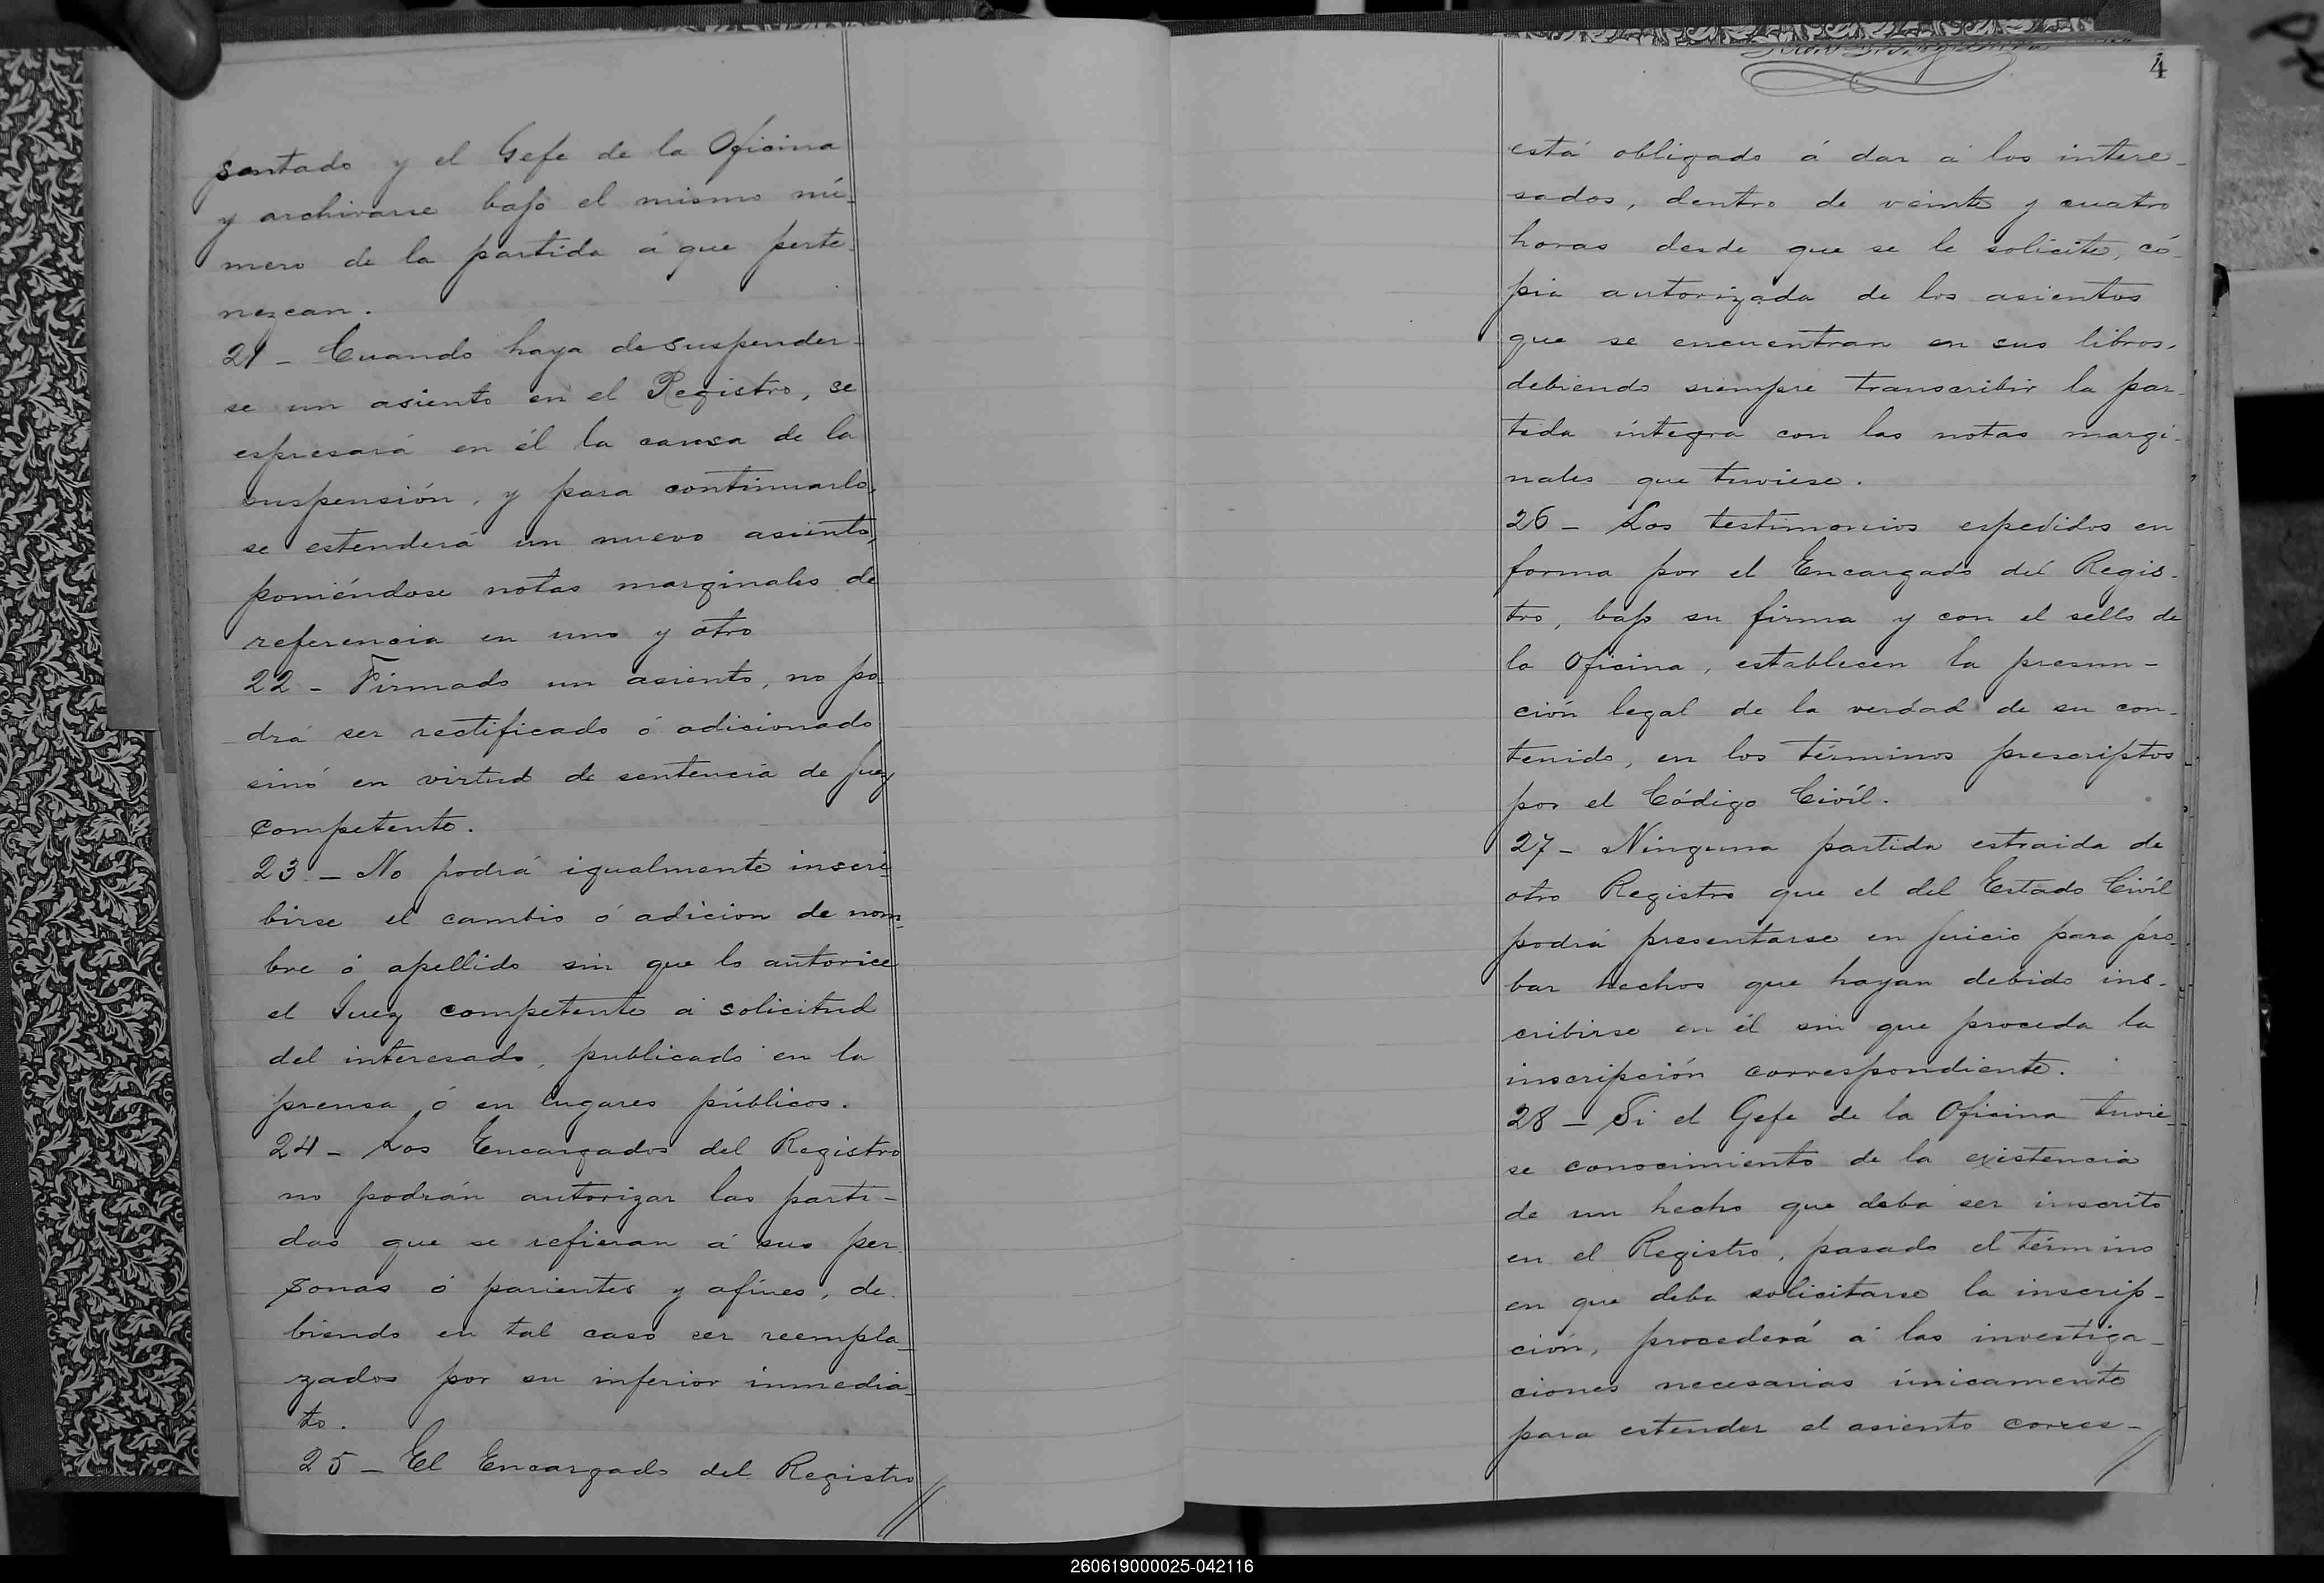 sentado y el Gefe de la Oficina
y archivarse bajo el mismo nú-
mero de la partida á que perte-
nezcan.
21 - Cuando haya de suspender-
se un asiento en el Registro, se
espresará en él la causa de la
suspensión, y para continuarlo,
se estenderá un nuevo asiento,
poniéndose notas marginales de
referencia en uno y otro
22 - Firmado un asiento, no po-
drá ser rectificado ó adicionado
sinó en virtud de sentencia de juez
competente.
23. - No podrá igualmente inscri-
birse el cambio ó adicion de nom-
bre ó apellido sin que lo autorice
el Juez competente á solicitud
del interesado, publicado en la
prensa ó en lugares públicos.
24 - Los Encargados del Registro
no podrán autorizar las parti-
das que se refieran á sus per-
sonas ó parientes y afines, de-
biendo en tal caso ser reempla-
zados por su inferior inmedia-
to.
25 - El Encargado del Registro
4
está obligado á dar á los intere-
sados, dentro de veinte y cuatro
horas desde que se le solicite, có-
pia autorizada de los asientos
que se encuentran en sus libros,
debiendo siempre transcribir la par-
tida íntegra con las notas margi-
nales que tuviese.
26 - Los testimonios espedidos en
forma por el Encargado del Regis-
tro, bajo su firma y con el sello de
la Oficina, establecen la presun-
ción legal de la verdad de su con-
tenido, en los términos prescriptos
por el Código Civíl.
27 - Ninguna partida estraida de
otro Registro que el del Estado Civíl
podrá presentarse en juicio para pro-
bar hechos que hayan debido ins-
cribirse en él sin que proceda la
inscripción correspondiente.
28 - Si el Gefe de la Oficina tuvie-
se conocimiento de la existencia
de un hecho que deba ser inscrito
en el Registro, pasado el término
en que deba solicitarse la inscrip-
ción, procederá á las investiga-
ciones necesarias únicamente
para estender el asiento corres-
260619000025-042116